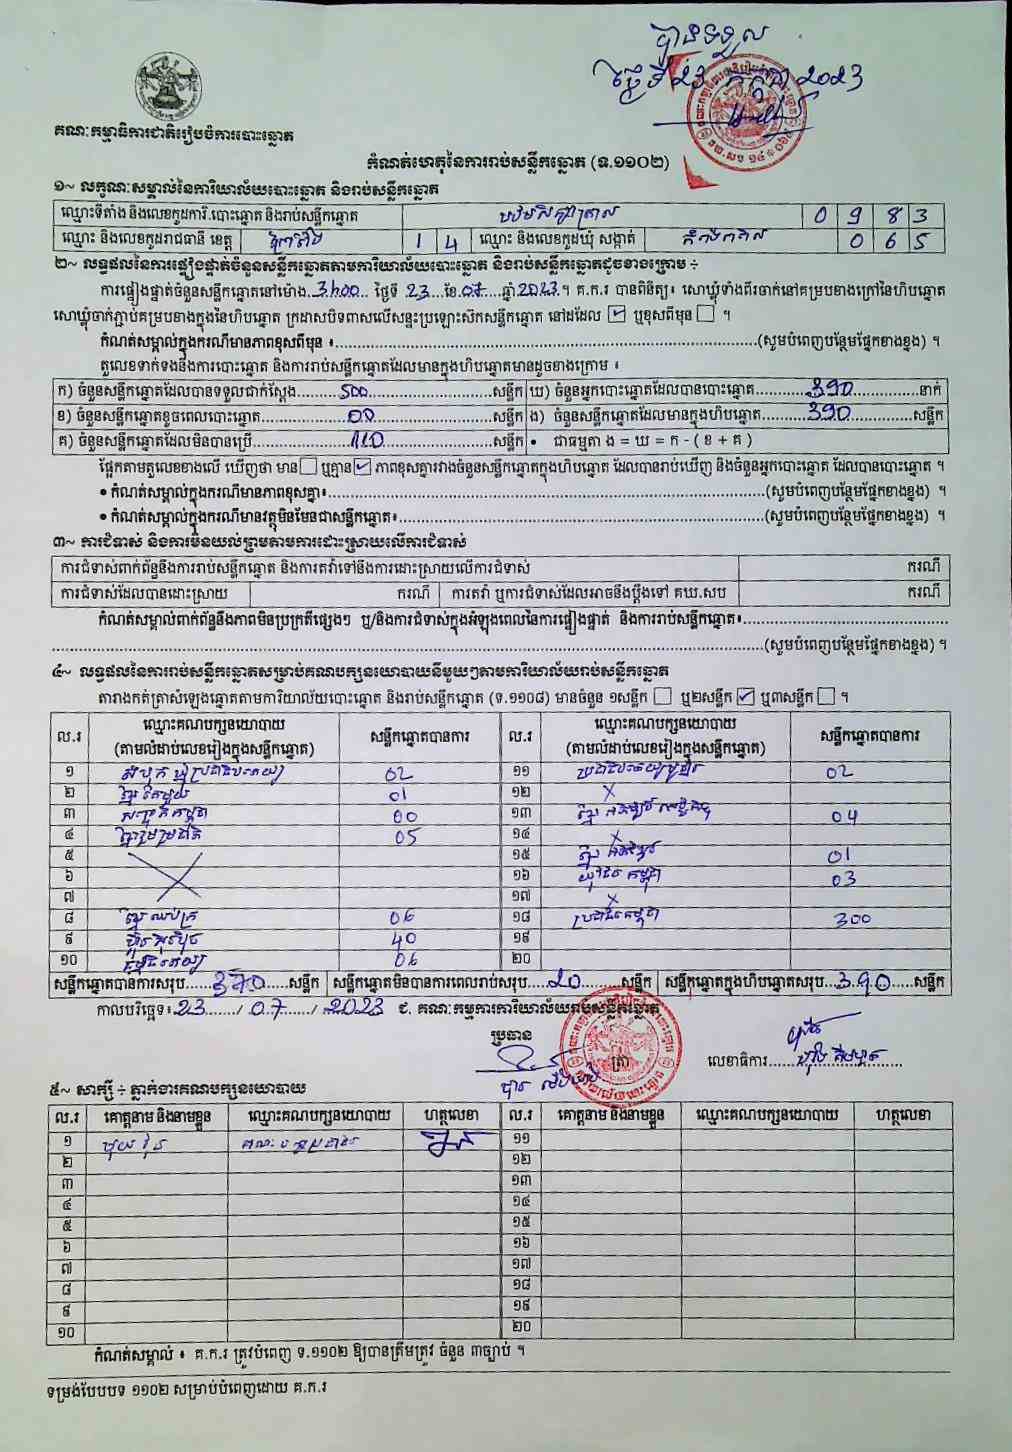 បានទទួល
ថ្ងៃទី 23 កក្កដា 2023
គណៈកម្មាធិការជាតិរៀបចំការបោះឆ្នោត
កំណត់ហេតុនៃការរាប់សន្លឹកឆ្នោត (ទ.១១០២)
១~ លក្ខណៈសម្គាល់នៃការិយាល័យបោះឆ្នោត និងរាប់សន្លឹកឆ្នោត
ឈ្មោះទីតាំង និងលេខកូដការិ.បោះឆ្នោត និងរាប់សន្លឹកឆ្នោត 0 9 8 3
ឈ្មោះ និងលេខកូដរាជធានី ខេត្ត ព្រៃវែង 1 4 ឈ្មោះ និងលេខកូដឃុំ សង្កាត់ 0 6 5
២~ លទ្ធផលនៃការផ្ទៀងផ្ទាត់ចំនួនសន្លឹកឆ្នោតតាមការិយាល័យបោះឆ្នោត និងរាប់សន្លឹកឆ្នោតដូចខាងក្រោម ÷
ការផ្ទៀងផ្ទាត់ចំនួនសន្លឹកឆ្នោតនៅម៉ោង 3h00 ថ្ងៃទី 23 ខែ 07 ឆ្នាំ 2023 ។ គ.ក.រ បានពិនិត្យ៖ សោឃ្លុំទាំងពីរចាក់នៅគម្របខាងក្រៅនៃហិបឆ្នោត
សោឃ្លុំចាក់ភ្ជាប់គម្របខាងក្នុងនៃហិបឆ្នោត ក្រដាសបិទពាសលើសន្ទះប្រឡោះស៊កសន្លឹកឆ្នោត នៅដដែល ☑ ឬខុសពីមុន ☐ ។
កំណត់សម្គាល់ក្នុងករណីមានភាពខុសពីមុន ៖ (សូមបំពេញបន្ថែមផ្នែកខាងខ្នង) ។
តួលេខទាក់ទងនឹងការបោះឆ្នោត និងការរាប់សន្លឹកឆ្នោតដែលមានក្នុងហិបឆ្នោតមានដូចខាងក្រោម ៖
ក) ចំនួនសន្លឹកឆ្នោតដែលបានទទួលជាក់ស្តែង 500 សន្លឹក ឃ) ចំនួនអ្នកបោះឆ្នោតដែលបានបោះឆ្នោត 390 នាក់
ខ) ចំនួនសន្លឹកឆ្នោតខូចពេលបោះឆ្នោត 00 សន្លឹក ង) ចំនួនសន្លឹកឆ្នោតដែលមានក្នុងហិបឆ្នោត 390 សន្លឹក
គ) ចំនួនសន្លឹកឆ្នោតដែលមិនបានប្រើ 110 សន្លឹក • ជាធម្មតា ង = ឃ = ក - ( ខ + គ )
ផ្អែកតាមតួលេខខាងលើ ឃើញថា មាន ☐ ឬគ្មាន ☑ ភាពខុសគ្នារវាងចំនួនសន្លឹកឆ្នោតក្នុងហិបឆ្នោត ដែលបានរាប់ឃើញ និងចំនួនអ្នកបោះឆ្នោត ដែលបានបោះឆ្នោត ។
• កំណត់សម្គាល់ក្នុងករណីមានភាពខុសគ្នា៖ (សូមបំពេញបន្ថែមផ្នែកខាងខ្នង) ។
• កំណត់សម្គាល់ក្នុងករណីមានវត្ថុមិនមែនជាសន្លឹកឆ្នោត៖ (សូមបំពេញបន្ថែមផ្នែកខាងខ្នង) ។
៣~ ការជំទាស់ និងការមិនយល់ព្រមតាមការដោះស្រាយលើការជំទាស់
ការជំទាស់ពាក់ព័ន្ធនឹងការរាប់សន្លឹកឆ្នោត និងការតវ៉ាទៅនឹងការដោះស្រាយលើការជំទាស់ ករណី
ការជំទាស់ដែលបានដោះស្រាយ ករណី ការតវ៉ា ឬការជំទាស់ដែលអាចនឹងប្តឹងទៅ គឃ.សប ករណី
កំណត់សម្គាល់ពាក់ព័ន្ធនឹងភាពមិនប្រក្រតីផ្សេងៗ ឬ/និងការជំទាស់ក្នុងអំឡុងពេលនៃការផ្ទៀងផ្ទាត់ និងការរាប់សន្លឹកឆ្នោត៖
(សូមបំពេញបន្ថែមផ្នែកខាងខ្នង) ។
៤~ លទ្ធផលនៃការរាប់សន្លឹកឆ្នោតសម្រាប់គណបក្សនយោបាយនីមួយៗតាមការិយាល័យរាប់សន្លឹកឆ្នោត
តារាងកត់ត្រាសំឡេងឆ្នោតតាមការិយាល័យបោះឆ្នោត និងរាប់សន្លឹកឆ្នោត (ទ.១១០៨) មានចំនួន ១សន្លឹក ☐ ឬ២សន្លឹក ☑ ឬ៣សន្លឹក ☐ ។
ល.រ ឈ្មោះគណបក្សនយោបាយ (តាមលំដាប់លេខរៀងក្នុងសន្លឹកឆ្នោត) សន្លឹកឆ្នោតបានការ ល.រ ឈ្មោះគណបក្សនយោបាយ (តាមលំដាប់លេខរៀងក្នុងសន្លឹកឆ្នោត) សន្លឹកឆ្នោតបានការ
១ 02 ១១ 02
២ 01 ១២ X
៣ 00 ១៣ 04
៤ 05 ១៤ X
៥ ១៥ 01
៦ ១៦ 03
៧ ១៧ X
៨ 06 ១៨ ប្រជាជនកម្ពុជា 300
៩ 40 ១៩
១០ 06 ២០
សន្លឹកឆ្នោតបានការសរុប 370 សន្លឹក សន្លឹកឆ្នោតមិនបានការពេលរាប់សរុប 20 សន្លឹក សន្លឹកឆ្នោតក្នុងហិបឆ្នោតសរុប 390 សន្លឹក
កាលបរិច្ឆេទ៖ 23 / 07 / 2023 ជ. គណៈកម្មការការិយាល័យរាប់សន្លឹកឆ្នោត
ប្រធាន
ត្រា
លេខាធិការ
៥~ សាក្សី ÷ ភ្នាក់ងារគណបក្សនយោបាយ
ល.រ គោត្តនាម និងនាមខ្លួន ឈ្មោះគណបក្សនយោបាយ ហត្ថលេខា ល.រ គោត្តនាម និងនាមខ្លួន ឈ្មោះគណបក្សនយោបាយ ហត្ថលេខា
១ ១១
២ ១២
៣ ១៣
៤ ១៤
៥ ១៥
៦ ១៦
៧ ១៧
៨ ១៨
៩ ១៩
១០ ២០
កំណត់សម្គាល់ ៖ គ.ក.រ ត្រូវបំពេញ ទ.១១០២ ឱ្យបានត្រឹមត្រូវ ចំនួន ៣ច្បាប់ ។
ទម្រង់បែបបទ ១១០២ សម្រាប់បំពេញដោយ គ.ក.រ